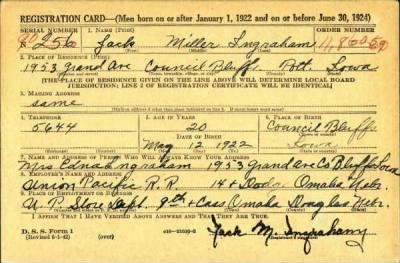 REGISTRATION CARD—(Men born on or after January 1, 1922 and on or before June 30, 1924)
SERIAL NUMBER 1. NAME (Print) ORDER NUMBER
256 Jack Miller Ingraham
2. PLACE OF RESIDENCE (Print)
1953 Grand Ave Council Bluffs Pott. Iowa
(THE PLACE OF RESIDENCE GIVEN ON THE LINE ABOVE WILL DETERMINE LOCAL BOARD
JURISDICTION; LINE 2 OF REGISTRATION CERTIFICATE WILL BE IDENTICAL)
3. MAILING ADDRESS
same
4. TELEPHONE 5. AGE IN YEARS 6. PLACE OF BIRTH
5644 20 Council Bluffs
DATE OF BIRTH
May 12 1922 Iowa
7. NAME AND ADDRESS OF PERSON WHO WILL ALWAYS KNOW YOUR ADDRESS
Mrs Edna Ingraham 1953 Grand Ave Co Bluffs Iowa
8. EMPLOYER'S NAME AND ADDRESS
Union Pacific R.R. 14 + Dodge Omaha Nebr.
9. PLACE OF EMPLOYMENT OR BUSINESS
U.P. Store Dept. 9th + Cass Omaha Douglas Nebr.
I AFFIRM THAT I HAVE VERIFIED ABOVE ANSWERS AND THAT THEY ARE TRUE.
D. S. S. Form 1
(Revised 6-1-42) (over)
Jack M. Ingraham